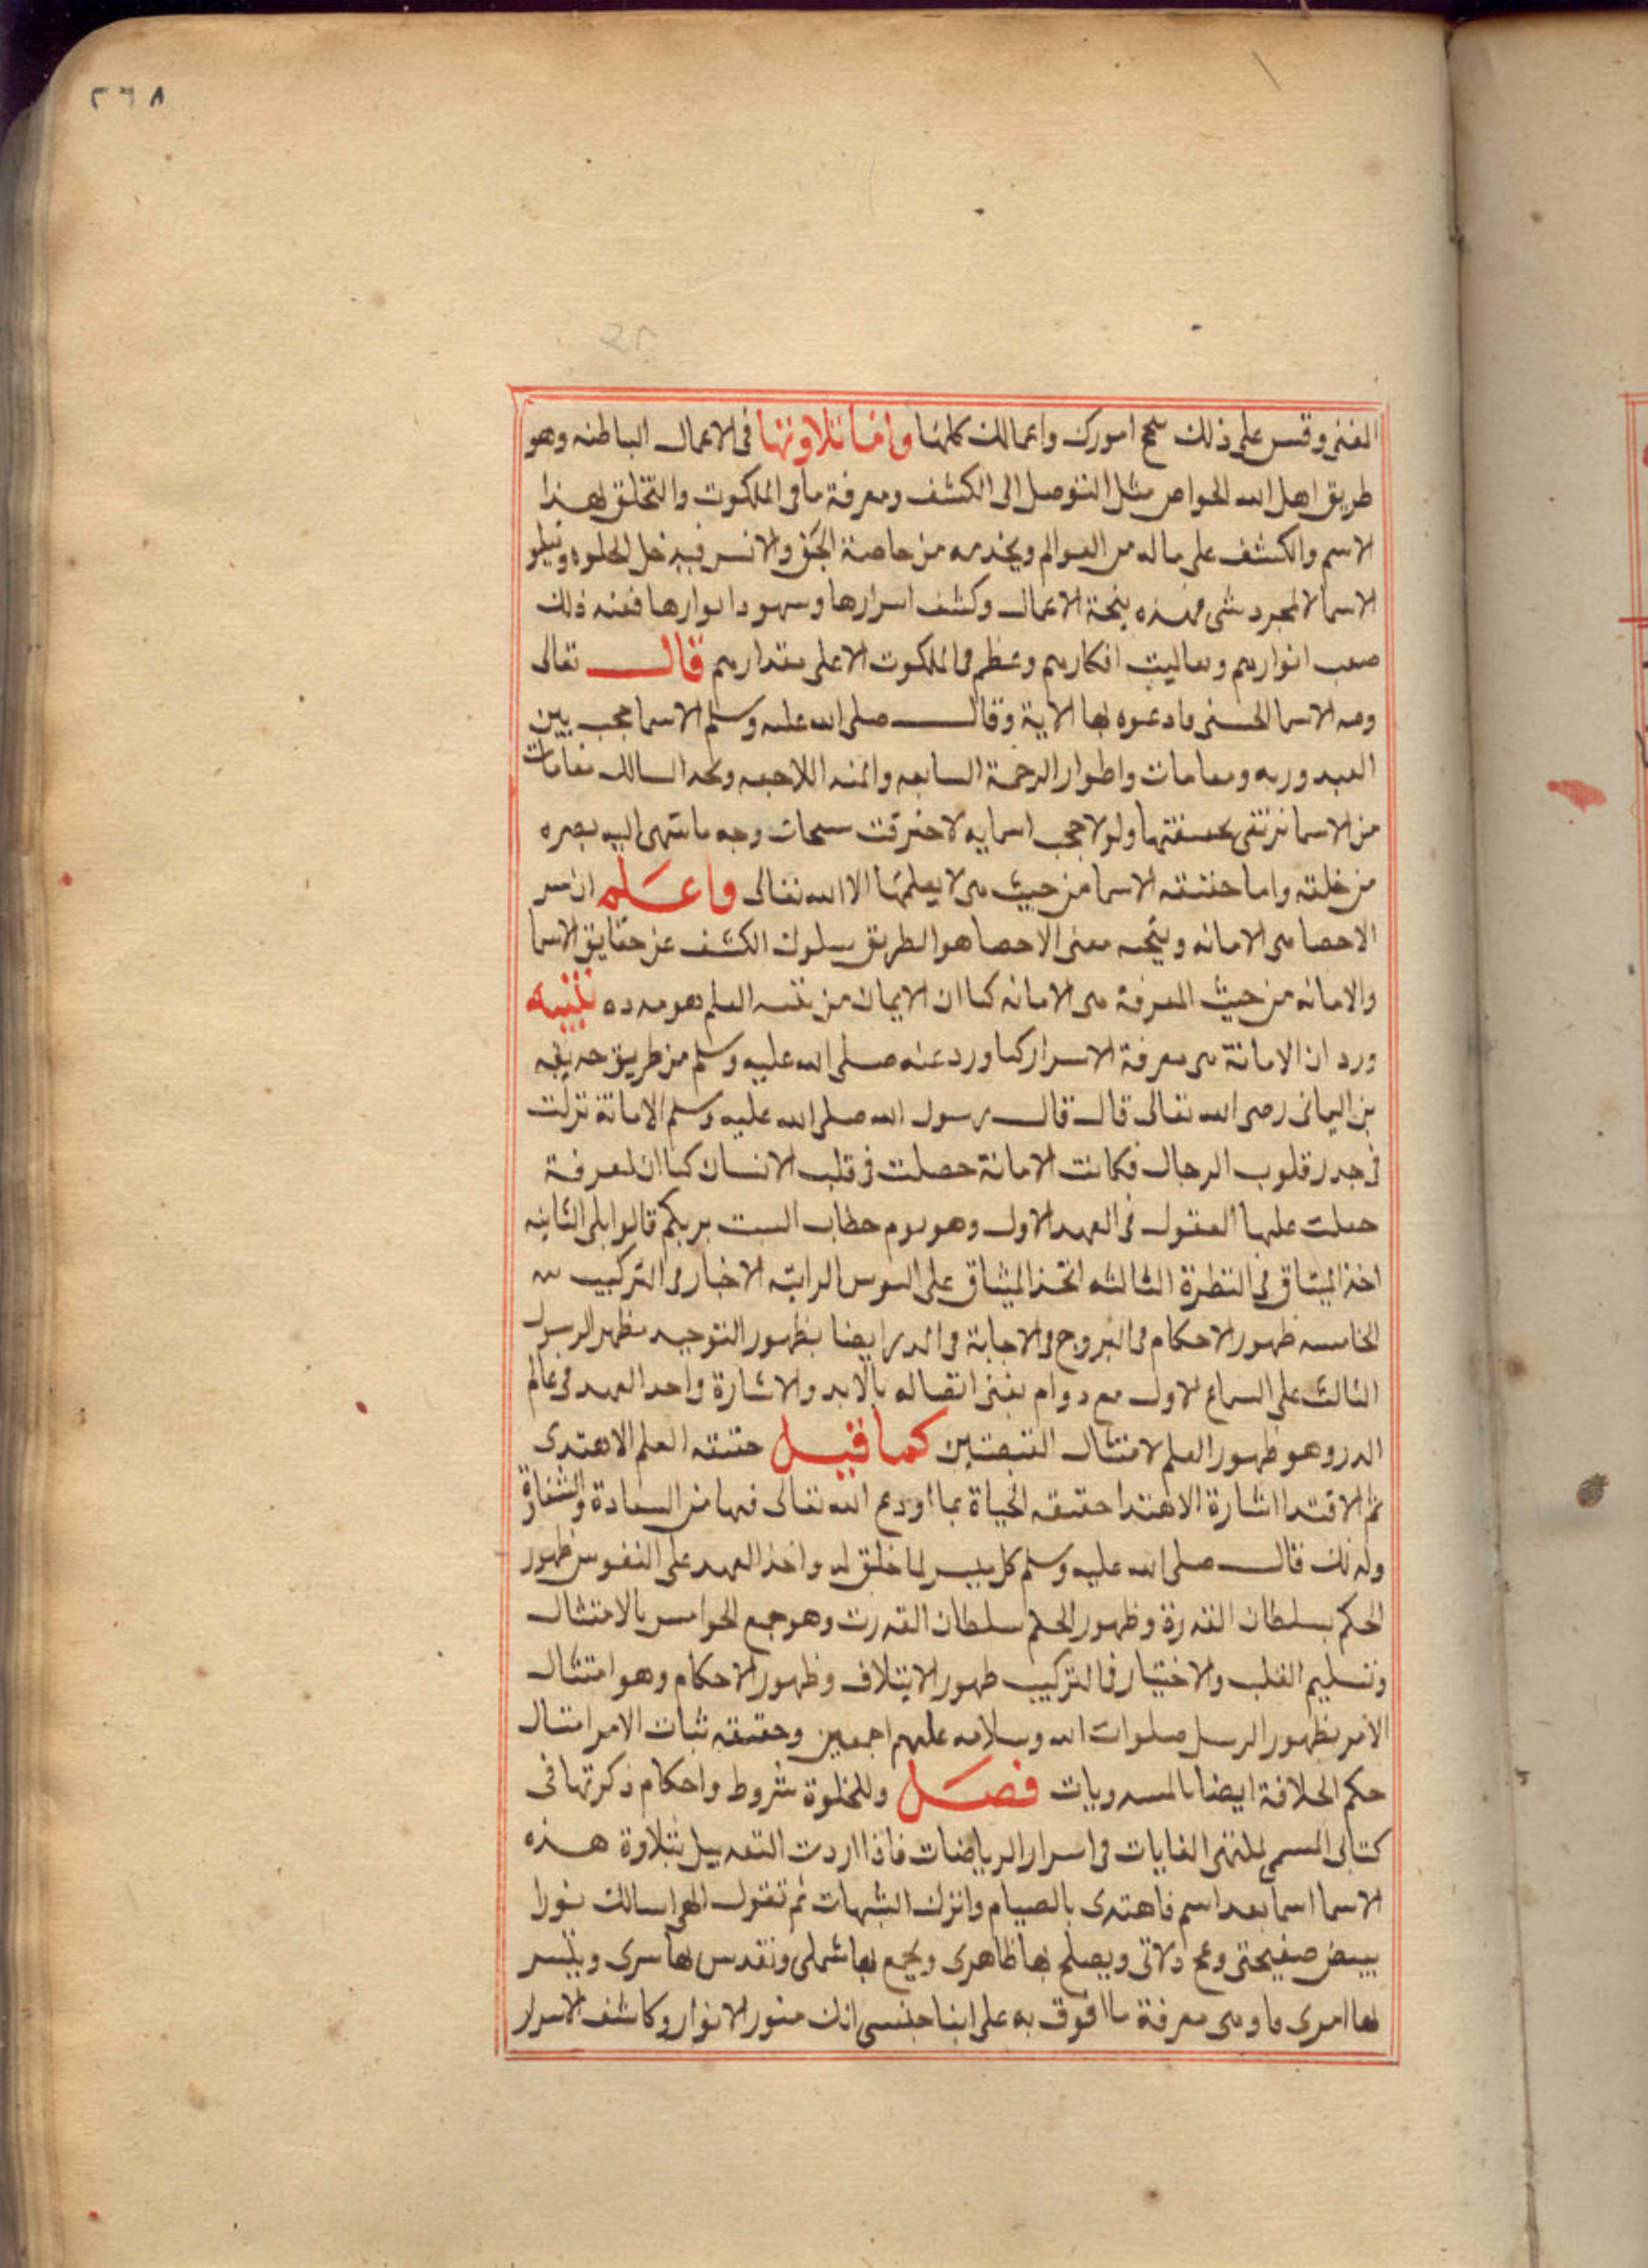 ٢٦٨
الغنى وقس على ذلك تنجح امورك واعمالك كلها واما تلاوتها فى الاعمال الباطنه وهو
طريق اهل الله الخواص مثل التوصل الى الكشف ومعرفة ما فى الملكوت والتخلق بهذا
الاسم والكشف على ماله من العوالم ويخدمه من خاصة الجن والانس فيدخل الخلوه ويتلو
الاسما لا لمجرد شى فهذه نتيجة الاعمال وكشف اسرارها وشهود انوارها فعند ذلك
انوارهم افكارهم وعظم فى الملكوت الاعلى مقدارهم قال تعالى
ولله الاسما الحسنى فادعوه بها الاية وقال صلى الله عليه وسلم الاسما حجب بين
العبد وربه ومقامات واطوار الرحمة السابقه والمنه اللاحقه السالك مقامات
من الاسما ترتقى ولولا حجب اسمايه لاحترقت سبحات وجه ما انتهى اليه بصره
من خلقه واما حقيقه الاسما من حيث هى لا يعلمها الا الله تعالى واعلم ان سر
الاحصا هى الامانه ونتيجه معنى الاحصا هو الطريق سلوك الكشف عن حقايق الاسما
والامانه من حيث المعرفة هى الامانه كما ان الايمان من العلم هو مدده تنبيه
ورد ان الامانة هى معرفة الاسرار كما ورد عنه صلى الله عليه وسلم من طريق حذيفه
بن اليمانى رضى الله تعالى قال قال رسول الله صلى الله عليه وسلم الامانة نزلت
فى جدر قلوب الرجال فكانت الامانة حصلت فى قلب الانسان كما ان المعرفة
جعلت عليها العقول فى العهد الاول وهو يوم خطاب الست بربكم قالوا بلى الثانيه
اخذ الميثاق فى الثالثه اتخذ الميثاق على النفوس الرابته الاختبار فى التركيب
الخامسه ظهور الاحكام فى البروج فى الاجابة فى الدر ايضا بظهور التوحيد مظهر الرسول
الثالث على السماع الاول مع دوام اتصاله بالابد والاشارة واخذ العهد فى عالم
الدر وهو ظهور العلم لامتثال القبضتين كما قيل حقيقه العلم الاهتدى
ثم الاقتدا اشارة الاهتدا حقيقه الحياة بما اودع الله تعالى فيها من السعادة والشقاوة
ولذلك قال صلى الله عليه وسلم كل ميسر لما خلق له واخذ العهد على النفوس ظهور
الحكم بسلطان القدرة وظهور الحكم سلطان القدرت وهو جمع الحواس بالامتثال
وتسليم القلب والاختيار فى التركيب ظهور الايتلاف وظهور الاحكام وهو امتثال
الامر بظهور الرسل صلوات الله وسلامه عليهم اجمعين وحقيقه ثبات الامر امتثال
حكم الخلافة ايضا فصل وللخلوة شروط واحكام ذكرتها فى
كتابى المسمى بمنتهى الغايات فى اسرار الرياضات فاذا اردت بتلاوة هذه
الاسما اسما بعد اسم فاهتدى بالصيام واترك الشبهات ثم تقول الهى اسالك نورا
يبيض صفيحتى زلاتى ويصلح بها ظاهرى ويجمع بها شملى وتقدس بها سرى وييسر
بها امرى معرفة ما افوق به على ابنا جنسى انك منور الانوار وكاشف الاسرار